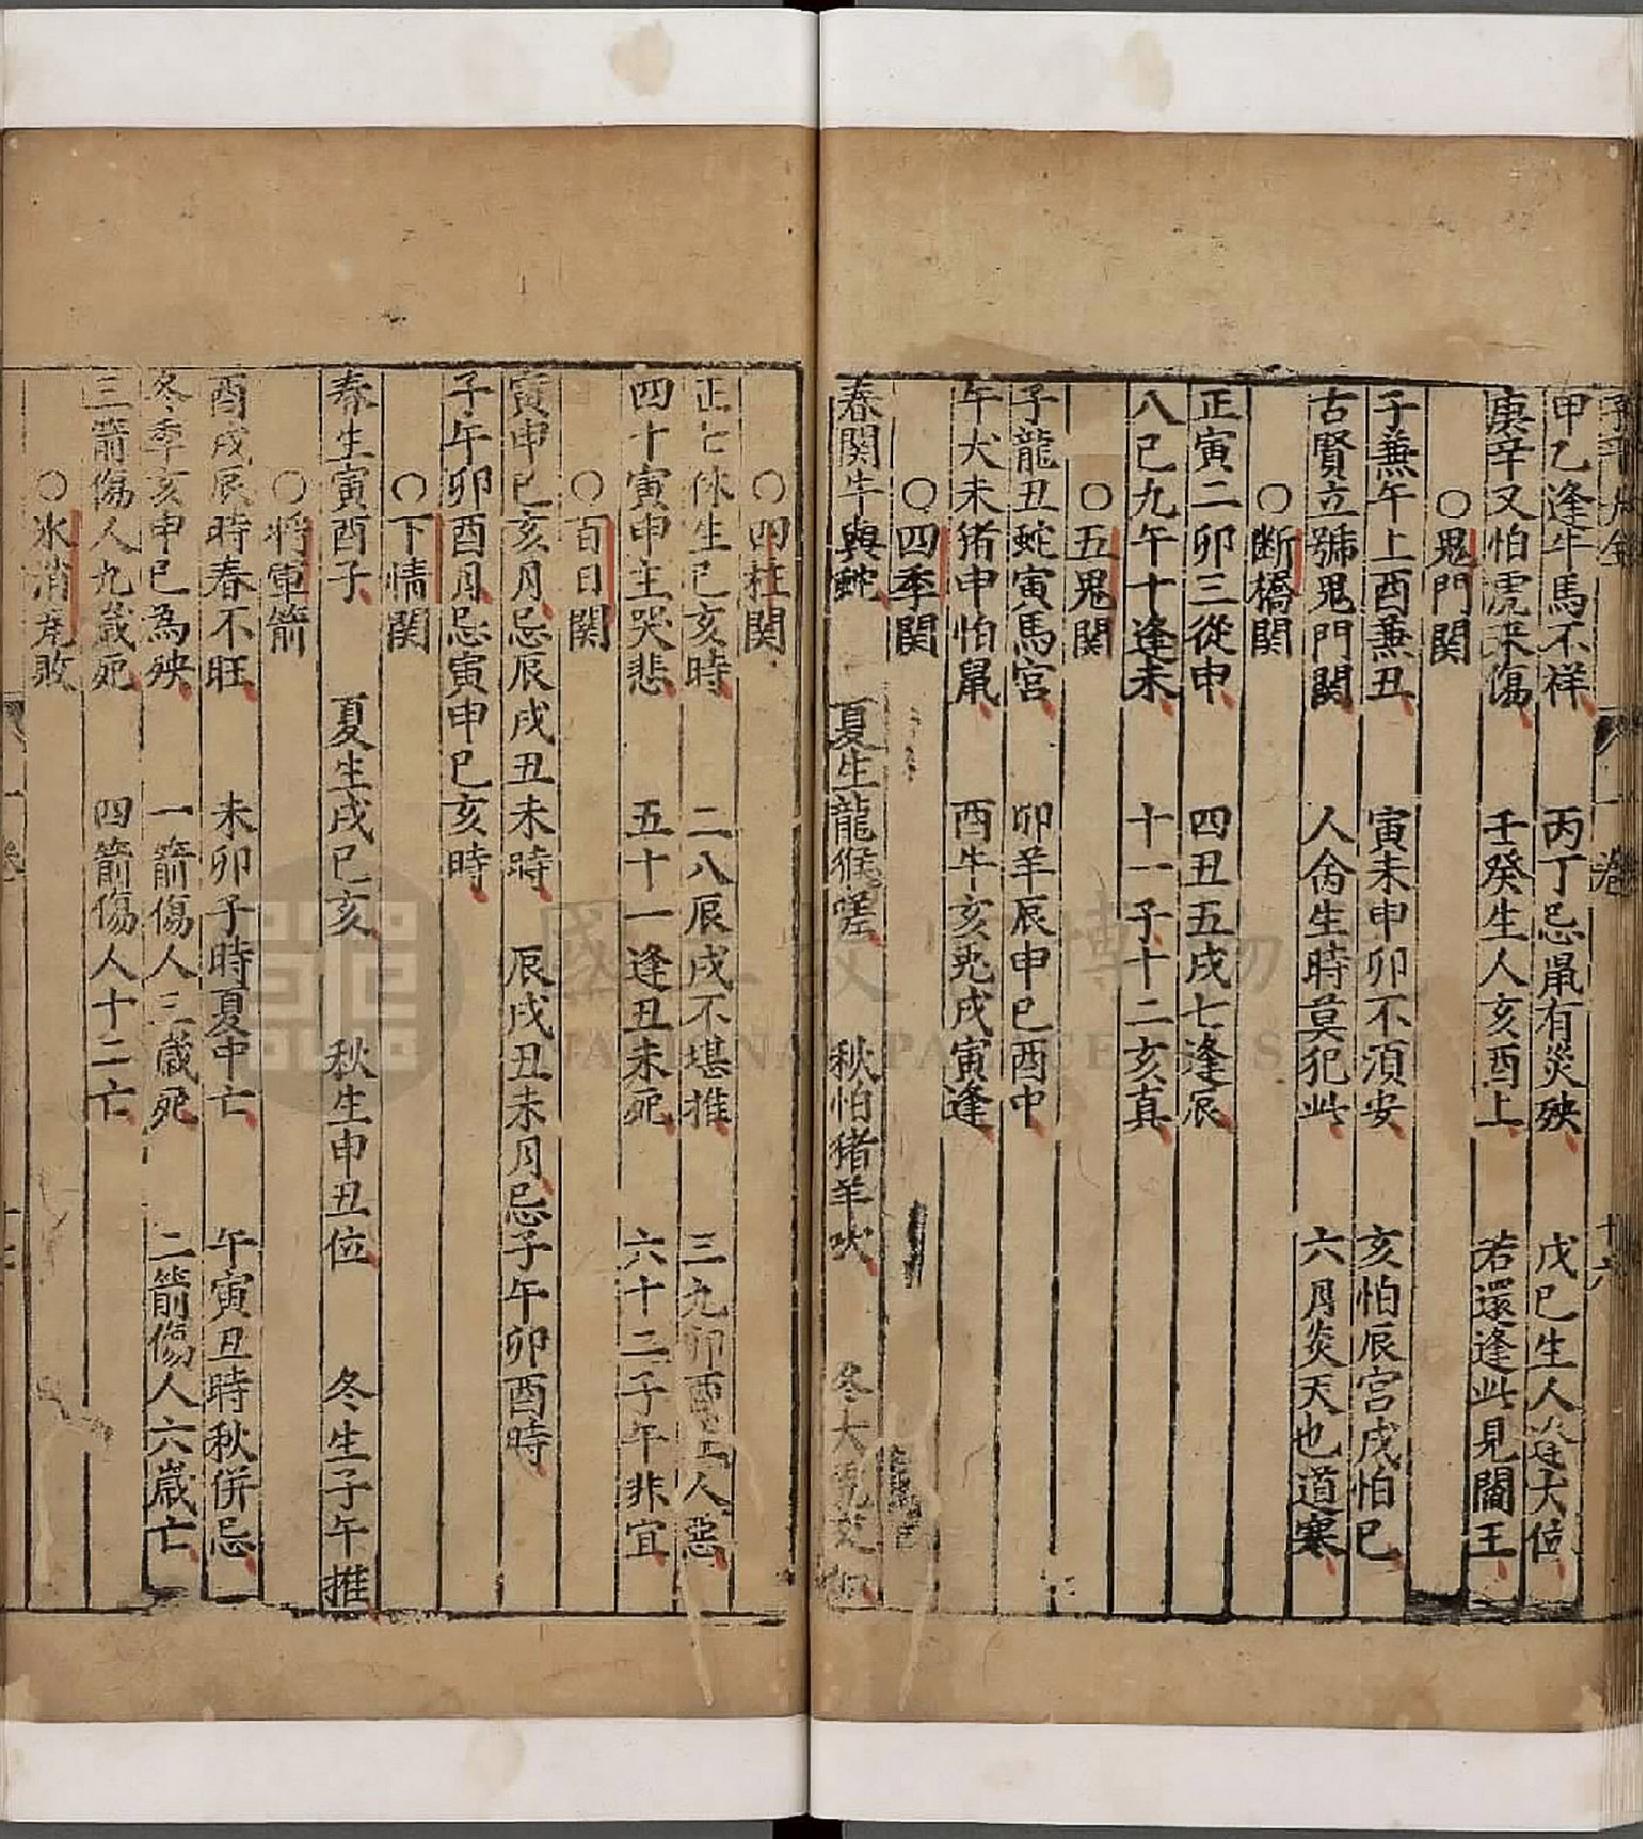 甲乙逢牛馬不祥 丙丁忌鼠有災殃 戊己生人逢犬位
庚辛又怕虎来傷 壬癸生人亥酉上 若還逢此見閻王
○鬼門関
子兼午上酉兼丑 寅未申卯不須安 亥怕辰宮戌怕巳
古賢立號鬼門関 人命生時莫犯此 六月炎天也道寒
○断橋関
正寅二卯三從申 四丑五戌七逢辰
八巳九午十逢未 十一子十二亥真
○五鬼関
子龍丑蛇寅馬宮 卯羊辰申巳酉中
午犬未猪申怕鼠 酉牛亥兎戌寅逢
○四季関
春関牛與蛇 夏生龍猴嗟 秋怕猪羊吠 冬犬
○四柱関
正七休生巳亥時 二八辰戌不堪推 三九卯酉生人惡
四十寅申主哭悲 五十一逢丑未死 六十二子午非宜
○百日関
寅申巳亥月忌辰戌丑未時 辰戌丑未月忌子午卯酉時
子午卯酉月忌寅申巳亥時
○下情関
春生寅酉子 夏生戌巳亥 秋生申丑位 冬生子午推
○将軍箭
酉戌辰時春不旺 未卯子時夏中亡 午寅丑時秋併忌
冬季亥申巳為殃 一箭傷人三歲死 二箭傷人六歲亡
三箭傷人九歲死 四箭傷人十二亡
○氷消瓦敗